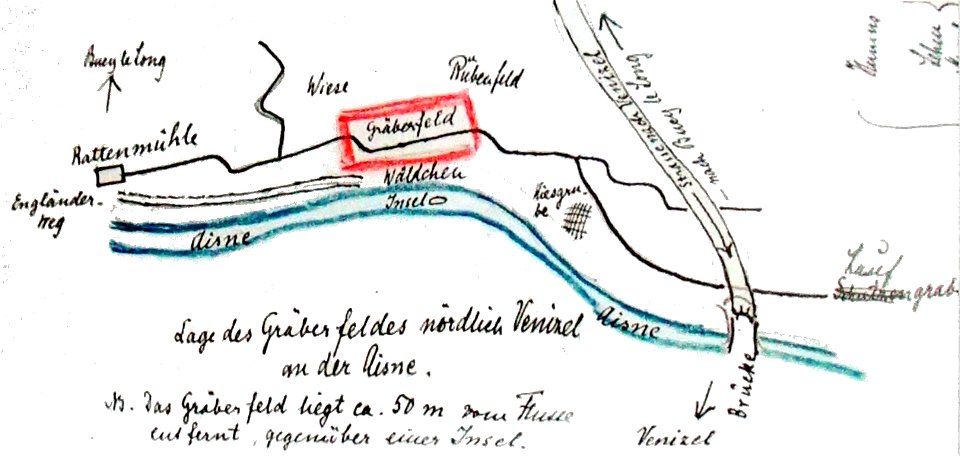 Bucy le Long
Wiese
Rübenfeld
Gräberfeld
Rattenmühle
Wäldchen
Engländer-
weg
Insel
Kiesgru-
be
Aisne
nach Bucy le Long
Strasse nach Venizel
Lauf
graben
Aisne
Lage des Gräberfeldes nördlich Venizel
an der Aisne.
NB. Das Gräberfeld liegt ca. 50 m vom Flusse
entfernt, gegenüber einer Insel.
Brücke
Venizel